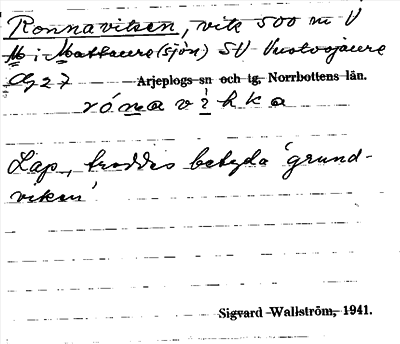 Ronnavitsen, vik 500 m V
M i Mattaure (sjön) SV Vuotsojaure
Ag 27 Arjeplogs sn och tg. Norrbottens län.
rónavìhka
Lap., troddes betyda 'grund-
viken'
Sigvard Wallström, 1941.